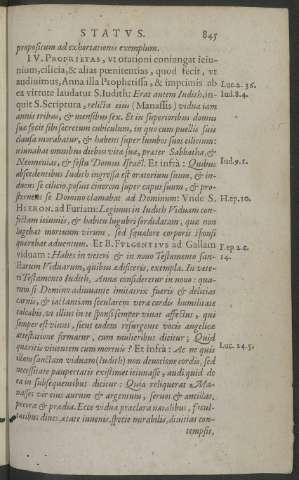 STATVS. 845
propositum ad exhortationis exemplum.
IV. PROPRIETAS, vt orationi coniungat ieiu-
nium, cilicia, & alias pœnitentias, quod fecit, vt
audiuimus, Anna illa Prophetissa, & imprimis ab
Luc. 2. 36.
ea virtute laudatur S. Iudith: Erat autem Iudith, in-
Iud. 8. 4.
quit S. Scriptura, relicta eius (Manassis) vidua iam
annis tribus, & mensibus sex. Et in superioribus domus
suæ fecit sibi secretum cubiculum, in quo cum puellis suis
clausa morabatur, & habens super lumbos suos cilicium:
ieiunabat omnibus diebus vitæ suæ, præter Sabbatha, &
Neomenias, & festa Domus Israël. Et infrà: Quibus
Iud. 9. 1.
abscedentibus Iudith ingressa est oratorium suum, & in-
duens se cilicio, posuit cinerem super caput suum, & pro-
sternens se Domino clamabat ad Dominum: Vnde S.
H. ep. 10.
HIERON. ad Furiam: Legimus in Iudith Viduam con-
fectam ieiuniis, & habitu lugubri sordidatam, quæ non
lugebat mortuum virum, sed squalore corporis sponsi
quærebat aduentum. Et B. FVLGENTIVS ad Gallam
F. ep. 2. c.
viduam: Habes in veteri & in nouo Testamento san-
14.
ctarum Viduarum, quibus adiiceris, exempla. In vete-
ri Testamento Iudith, Anna consideretur in nouo: qua-
rum si Domino adiuuante imitatrix fueris & delicias
carnis, & iactantiam sæcularem vera cordis humilitate
calcabis, vt illius in te sponsi semper viuat affectus, qui
semper est viuus, sicut eadem resurgente vocis angelicæ
attestatione firmatur, cum mulieribus dicitur: Quid
Luc. 24. 5.
quæritis viuentem cum mortuis? Et infrà: Ac ne quis
illam sanctam viduam (Iudith) non deuotione cordis, sed
necessitate paupertatis existimet ieiunasse, audi quid de
ea in subsequentibus dicitur: Quia reliquerat ei Ma-
nasses vir eius aurum & argentum, seruos & ancillas,
pecora & prædia. Ecce vidua præclara natalibus, facul-
tatibus diues, ætate iuuenis, specie mirabilis, diuitias con-
tempsit,